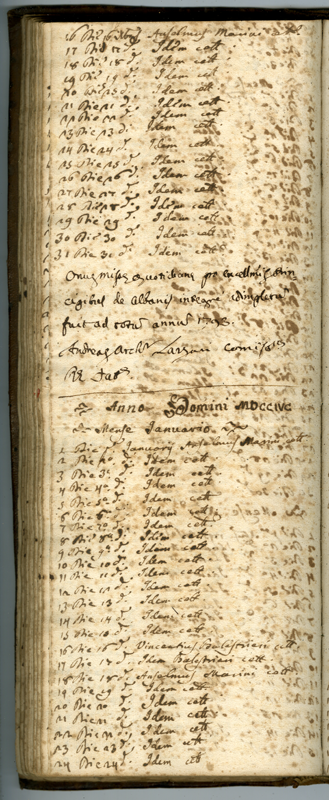 16 Die 16 d. Anselmus Marini
17 Die 17 d. Idem cott
18 Die 18 d. Idem cott
19 Die 19 d. Idem cott
20 Die 20 d. Idem cott
21 Die 21 d. Idem cott
22 Die 22 d. Idem cott
23 Die 23 d. Idem cott
24 Die 24 d. Idem cott
25 Die 25 d. Idem cott
26 Die 26 d. Idem cott
27 Die 27 d. Idem cott
28 Die 28 d. Idem cott
29 Die 29 d. Idem cott
30 Die 30 d. Idem cott
31 Die 31 d. Idem cott
Onus missæ quotidianæ pro
de Albanis integre
fuit ad totum annum
Andreas Arch.
Anno Domini MDCCIVC
de Mense Januario
1 Die Januarij Anselmus Marini cott
2 Die 2 d. Idem cott
3 Die 3 d. Idem cott
4 Die 4 d. Idem cott
5 Die 5 d. Idem cott
6 Die 6 d. Idem cott
7 Die 7 d. Idem cott
8 Die 8 d. Idem cott
9 Die 9 d. Idem cott
10 Die 10 d. Idem cott
11 Die 11 d. Idem cott
12 Die 12 d. Idem cott
13 Die 13 d. Idem cott
14 Die 14 d. Idem cott
15 Die 15 d. Idem cott
16 Die 16 d. Vincentius Balestrieri cott
17 Die 17 d. Idem Balestrieri cott
18 Die 18 d. Anselmus Marini cott
19 Die 19 d. Idem cott
20 Die 20 d. Idem cott
21 Die 21 d. Idem cott
22 Die 22 d. Idem cott
23 Die 23 d. Idem cott
24 Die 24 d. Idem cott